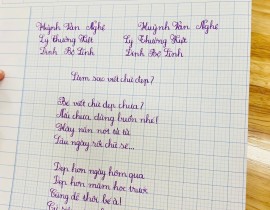 Huỳnh Văn Nghệ Huỳnh Văn Nghệ
Lý Thường Kiệt Lý Thường Kiệt
Đinh Bộ Lĩnh Đinh Bộ Lĩnh
Làm sao viết chữ đẹp?
Bé viết chữ đẹp chưa?
Nếu chưa, đừng buồn nhé!
Hãy nắn nót từ từ
Lâu ngày rồi chữ sẽ...
Đẹp hơn ngày hôm qua
Đẹp hơn năm học trước
Cũng dễ thôi bé à!